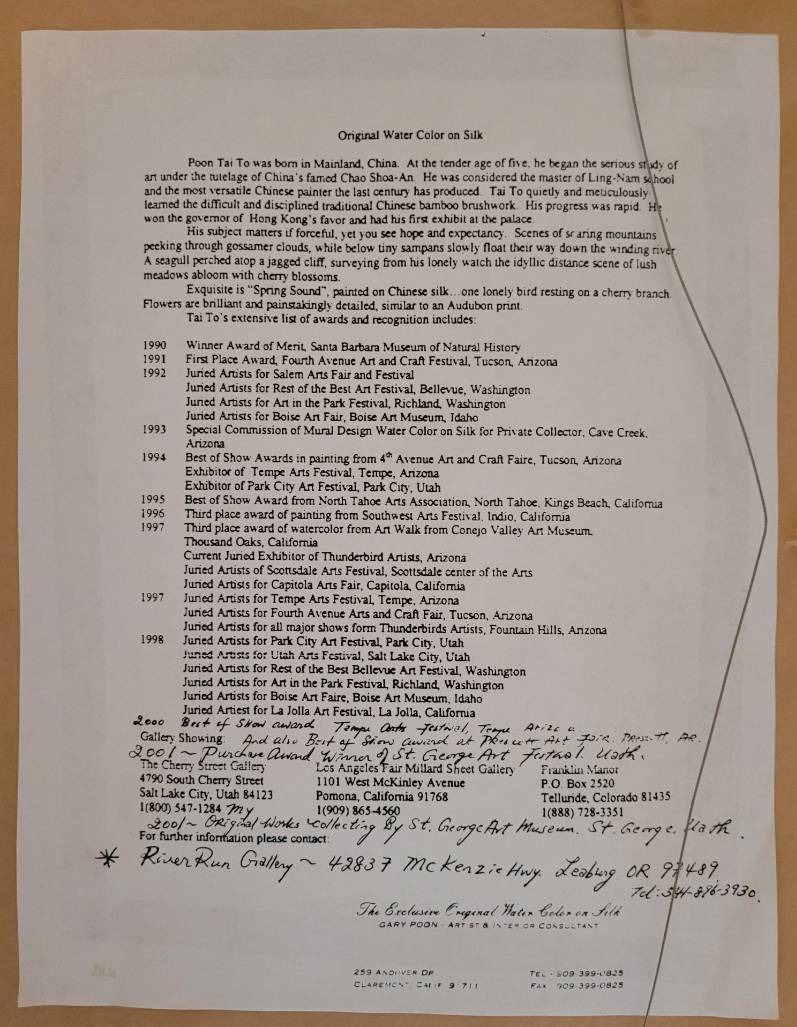 Original Water Color on Silk
Poon Tai To was born in Mainland, China. At the tender age of five, he began the serious study of
art under the tutelage of China's famed Chao Shoa-An. He was considered the master of Ling-Nam school
and the most versatile Chinese painter the last century has produced. Tai To quietly and meticulously
learned the difficult and disciplined traditional Chinese bamboo brushwork. His progress was rapid. He
won the governor of Hong Kong's favor and had his first exhibit at the palace.
His subject matters if forceful, yet you see hope and expectancy. Scenes of soaring mountains
peeking through gossamer clouds, while below tiny sampans slowly float their way down the winding river.
A seagull perched atop a jagged cliff, surveying from his lonely watch the idyllic distance scene of lush
meadows abloom with cherry blossoms.
Exquisite is "Spring Sound", painted on Chinese silk…one lonely bird resting on a cherry branch.
Flowers are brilliant and painstakingly detailed, similar to an Audubon print.
Tai To's extensive list of awards and recognition includes:
1990 Winner Award of Merit, Santa Barbara Museum of Natural History
1991 First Place Award, Fourth Avenue Art and Craft Festival, Tucson, Arizona
1992 Juried Artists for Salem Arts Fair and Festival
Juried Artists for Rest of the Best Art Festival, Bellevue, Washington
Juried Artists for Art in the Park Festival, Richland, Washington
Juried Artists for Boise Art Fair, Boise Art Museum, Idaho
1993 Special Commission of Mural Design Water Color on Silk for Private Collector, Cave Creek,
Arizona
1994 Best of Show Awards in painting from 4th Avenue Art and Craft Faire, Tucson, Arizona
Exhibitor of Tempe Arts Festival, Tempe, Arizona
Exhibitor of Park City Art Festival, Park City, Utah
1995 Best of Show Award from North Tahoe Arts Association, North Tahoe, Kings Beach, California
1996 Third place award of painting from Southwest Arts Festival, Indio, California
1997 Third place award of watercolor from Art Walk from Conejo Valley Art Museum,
Thousand Oaks, California
Current Juried Exhibitor of Thunderbird Artists, Arizona
Juried Artists of Scottsdale Arts Festival, Scottsdale center of the Arts
Juried Artists for Capitola Arts Fair, Capitola, California
1997 Juried Artists for Tempe Arts Festival, Tempe, Arizona
Juried Artists for Fourth Avenue Arts and Craft Fair, Tucson, Arizona
Juried Artists for all major shows form Thunderbirds Artists, Fountain Hills, Arizona
1998 Juried Artists for Park City Art Festival, Park City, Utah
Juried Artists for Utah Arts Festival, Salt Lake City, Utah
Juried Artists for Rest of the Best Bellevue Art Festival, Washington
Juried Artists for Art in the Park Festival, Richland, Washington
Juried Artists for Boise Art Faire, Boise Art Museum, Idaho
Juried Artiest for La Jolla Art Festival, La Jolla, California
2000 Best of Show award Tempe Arts Festival, Tempe
Gallery Showing: And also Best of Show award at Art Fair.
2001 ~ Purchase Award Winner of St. George Art Festival. Utah.
The Cherry Street Gallery Los Angeles Fair Millard Sheet Gallery Franklin Manor
4790 South Cherry Street 1101 West McKinley Avenue P.O. Box 2520
Salt Lake City, Utah 84123 Pomona, California 91768 Telluride, Colorado 81435
1(800) 547-1284 my 1(909) 865-4560 1(888) 728-3351
2001~ Original Works collecting By St. George Art Museum. St. George. Utah.
For further information please contact:
* River Run Gallery ~ 42837 McKenzie Hwy. Leaburg OR 97489
Tel: 541-896-3930.
The Exclusive Original Water Color on Silk
GARY POON - ARTIST & INTERIOR CONSULTANT
259 ANDOVER DR TEL - 909-399-0825
CLAREMONT, CALIF. 91711 FAX 909-399-0825